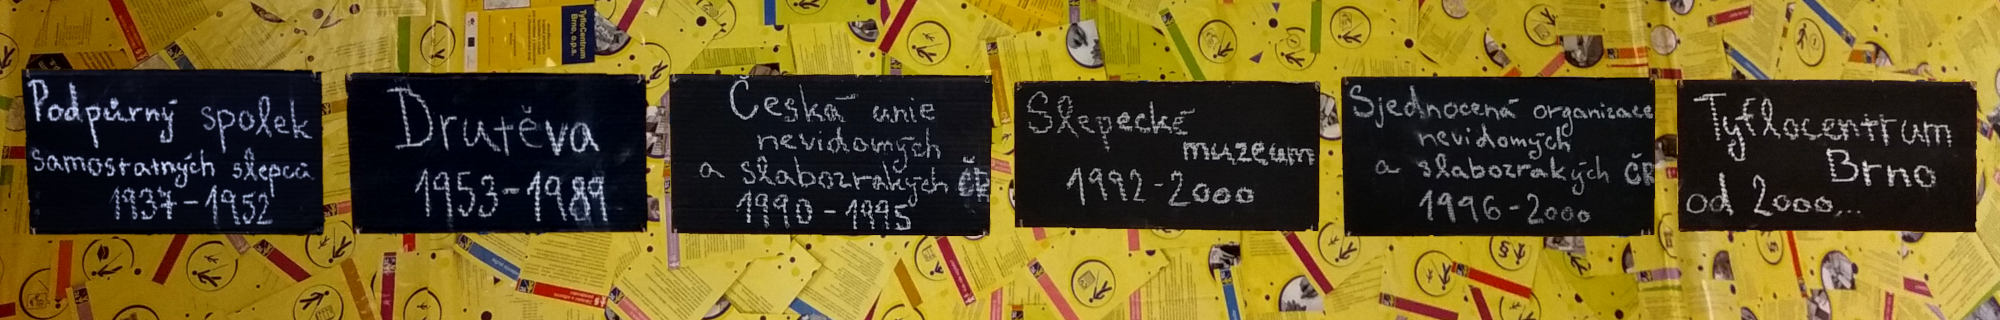 TyfloCentrum
Brno, o.p.s.
Podpůrný spolek
samostatných slepců
1937-1952
Drutěva
1953-1989
Česká unie
nevidomých
a slabozrakých ČR
1990-1995
Slepecké
muzeum
1992-2000
Sjednocená organizace
nevidomých
a slabozrakých ČR
1996-2000
Tyflocentrum
Brno
od 2000...